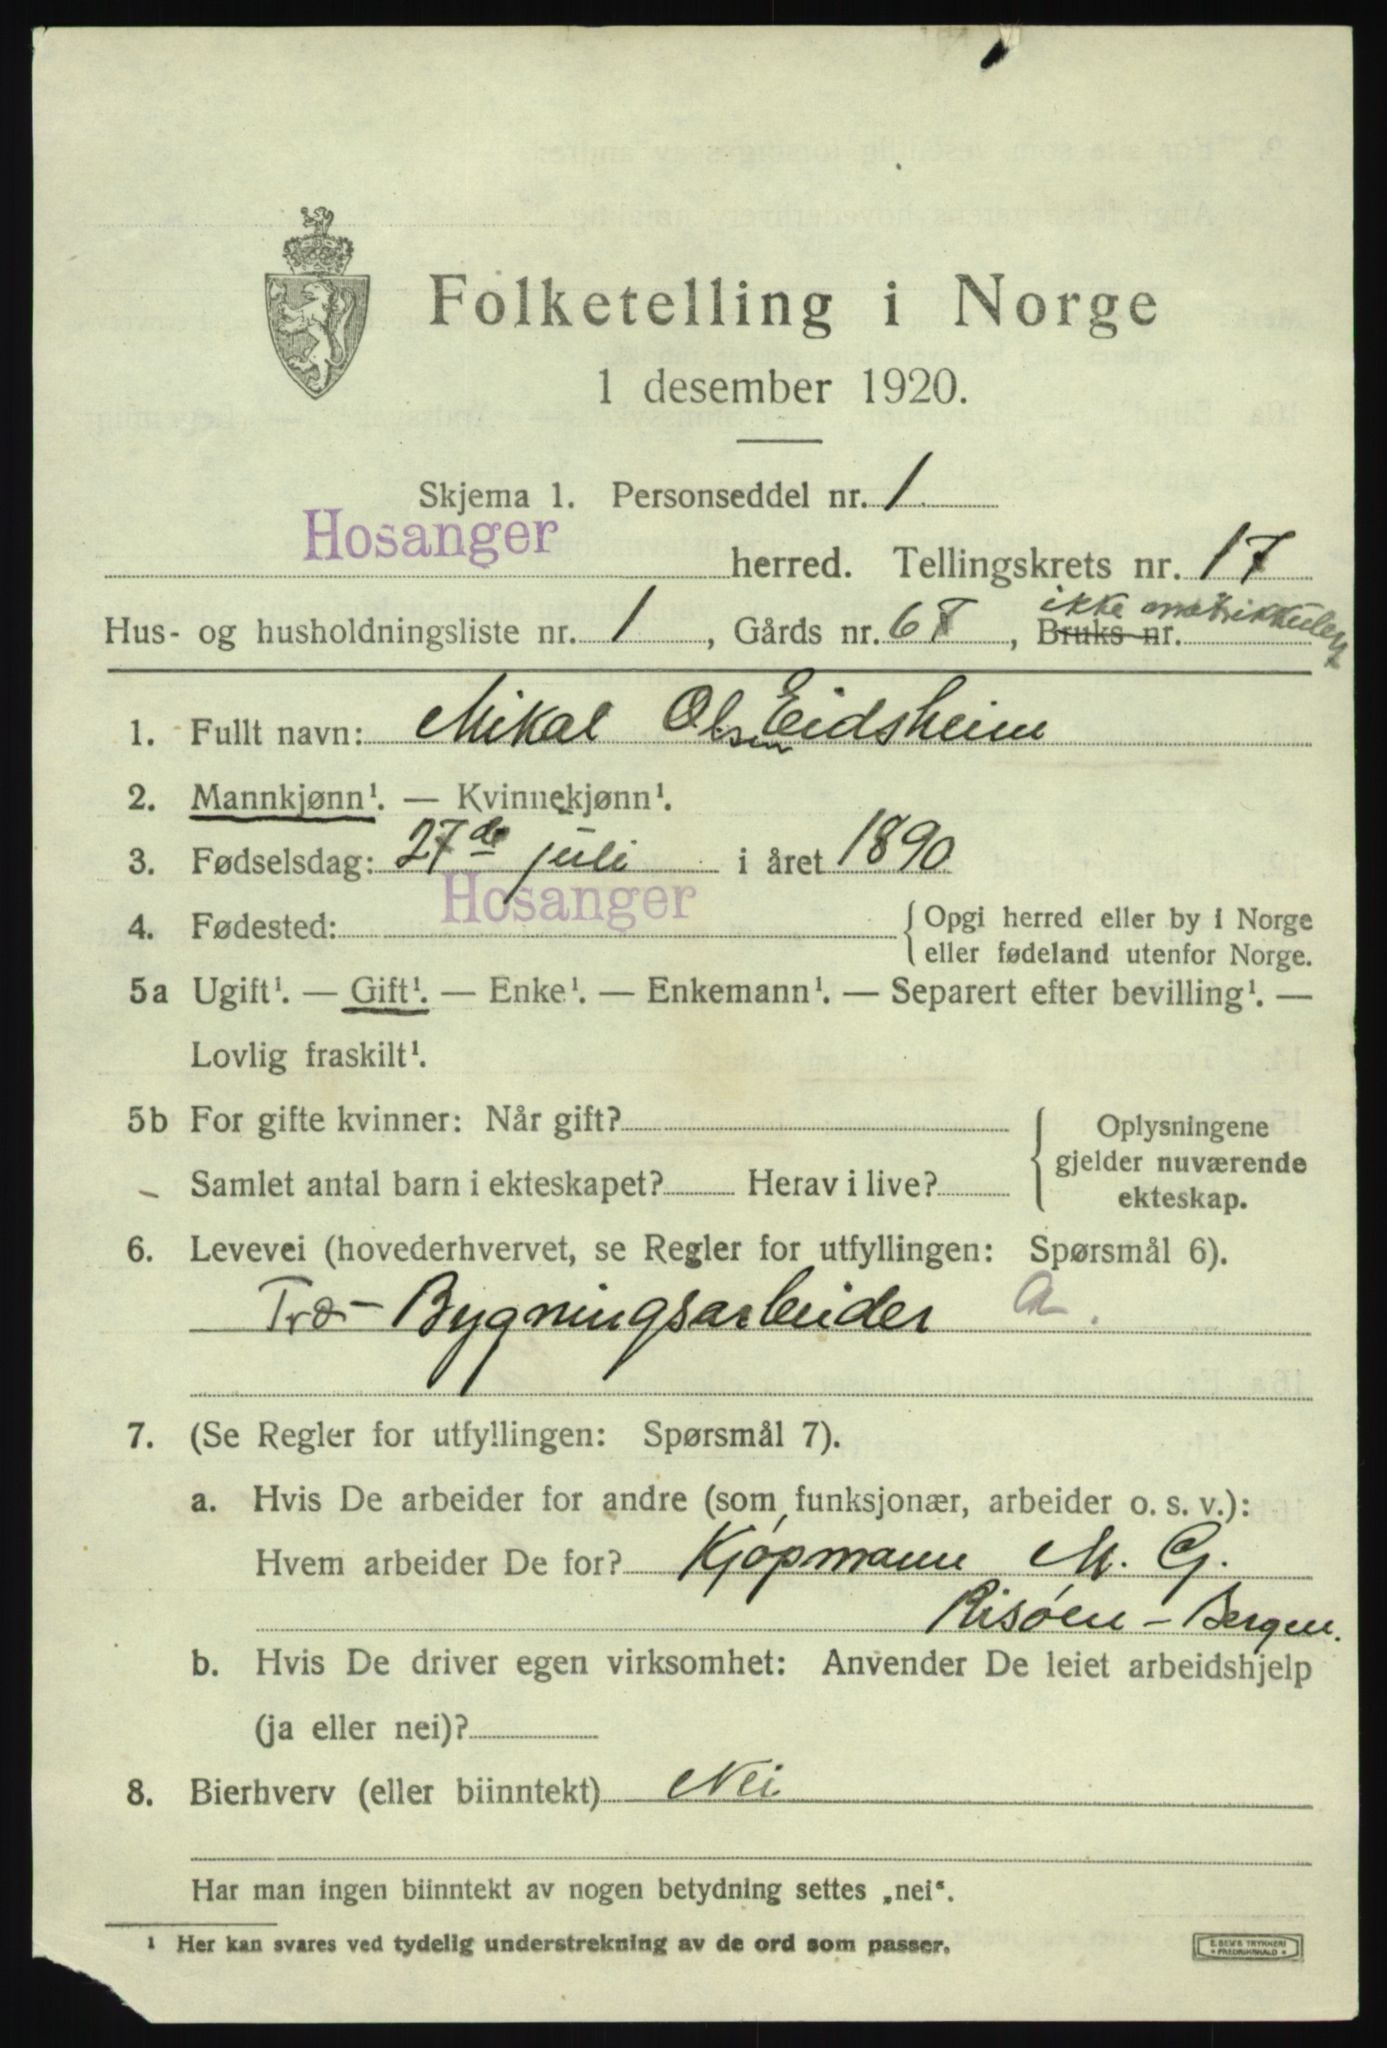 Folketelling i Norge
1 desember 1920.
Skjema 1. Personseddel nr. 1
Hosanger herred. Tellingskrets nr. 17
Hus- og husholdningsliste nr. 1, Gårds nr. 67, Bruks nr. ikke matrikkulert
1. Fullt navn: Mikal Olsen Eidsheim
2. Mannkjønn¹. — Kvinnekjønn¹.
3. Fødselsdag: 27de juli i året 1890
4. Fødested: Hosanger { Opgi herred eller by i Norge
eller fødeland utenfor Norge.
5a Ugift¹. — Gift¹. — Enke¹. — Enkemann¹. — Separert efter bevilling¹. —
Lovlig fraskilt¹.
5b For gifte kvinner: Når gift? { Oplysningene
gjelder nuværende
ekteskap.
Samlet antal barn i ekteskapet? Herav i live?
6. Levevei (hovederhvervet, se Regler for utfyllingen: Spørsmål 6).
Træ- Bygningsarbeider a.
7. (Se Regler for utfyllingen: Spørsmål 7).
a. Hvis De arbeider for andre (som funksjonær, arbeider o. s. v.):
Hvem arbeider De for? Kjøpmann M. G.
Risøen - Bergen.
b. Hvis De driver egen virksomhet: Anvender De leiet arbeidshjelp
(ja eller nei)?
8. Bierhverv (eller biinntekt) Nei
Har man ingen biinntekt av nogen betydning settes „nei“.
¹ Her kan svares ved tydelig understrekning av de ord som passer.
E. SEM'S TRYKKERI
• FREDRIKSHALD •